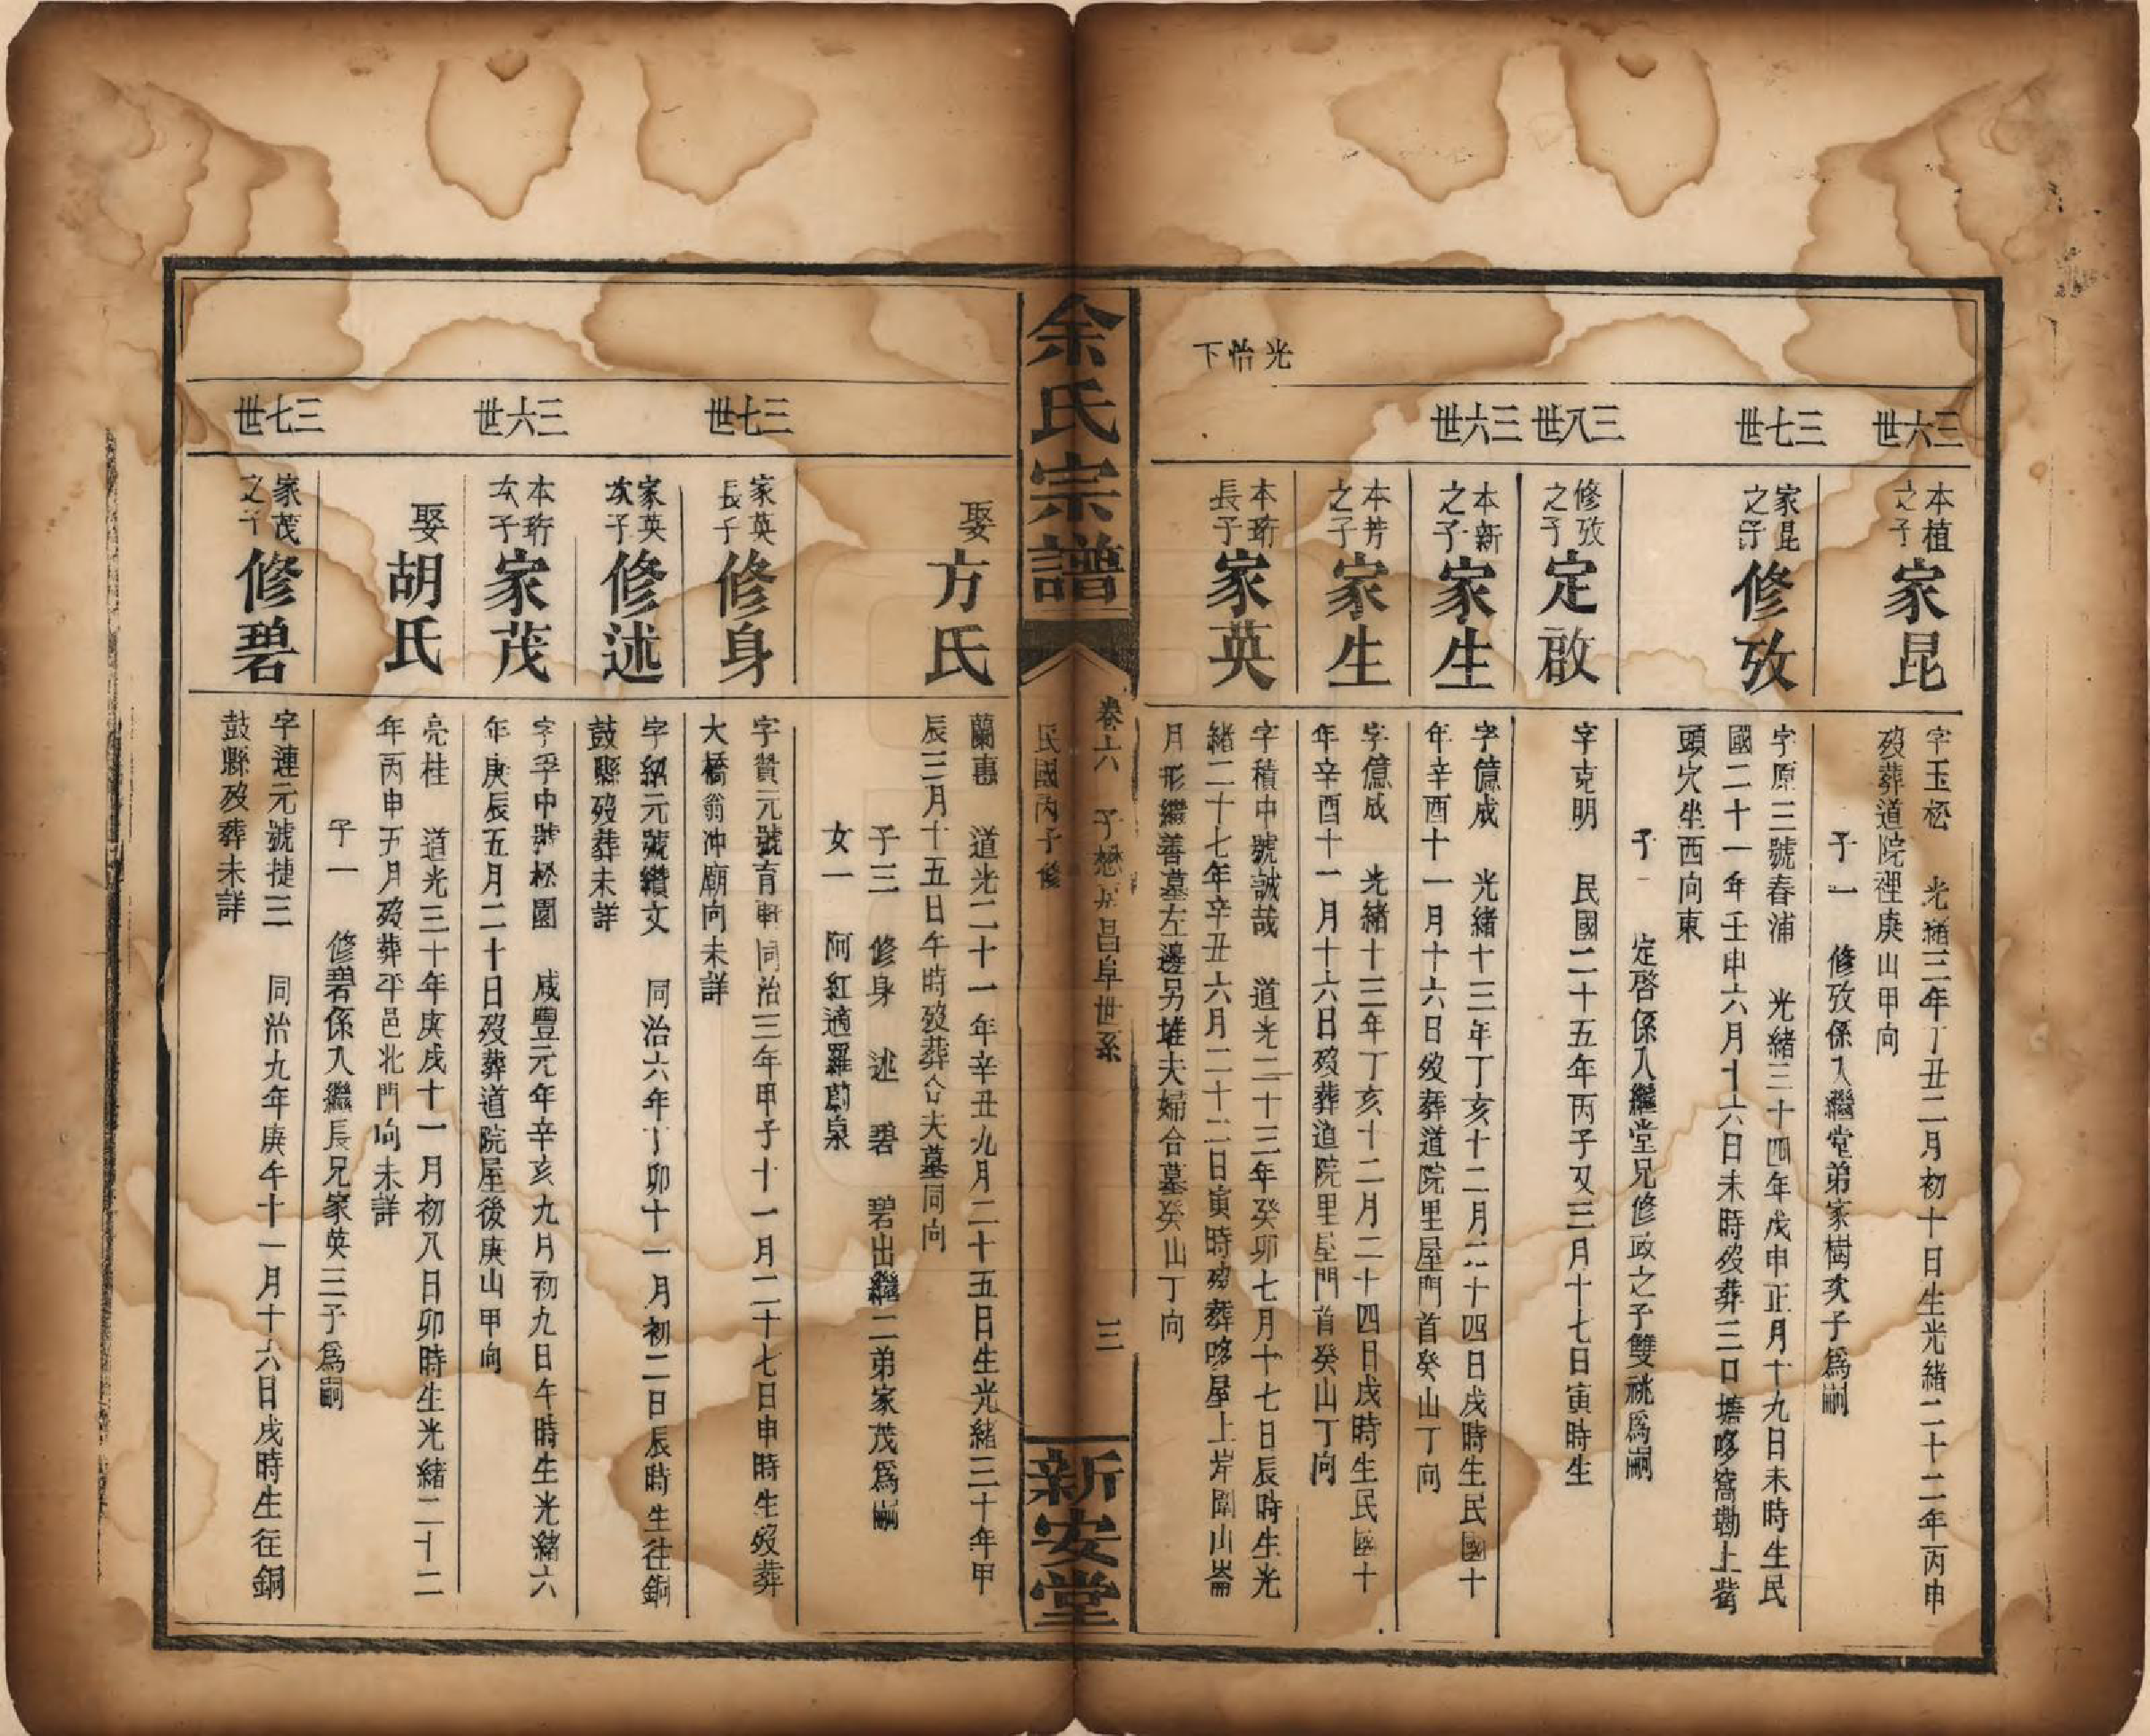 光怡下
三六世
本植之子
家昆
字玉松 光緒三年丁丑二月初十日生光緒二十二年丙申
歿葬道院裡庚山甲向
子一 修攷係入繼堂弟家樹次子爲嗣
三七世
家昆之子
修攷
字原三號春浦 光緒三十四年戊申正月十九日未時生民
國二十一年壬申六月十六日未時歿葬三口塘
頭穴坐西向東
子一 定啓係入繼堂兄修政之子雙祧爲嗣
三八世
修攷之子
定啟
字克明 民國二十五年丙子又三月十七日寅時生
三六世
本新之子
家生
字億成 光緒十三年丁亥十二月二十四日戌時生民國十
年辛酉十一月十六日歿葬道院里屋門首癸山丁向
本芳之子
家生
字億成 光緒十三年丁亥十二月二十四日戌時生民國十
年辛酉十一月十六日歿葬道院里屋門首癸山丁向
本珩長子
家英
字積中號誠哉 道光二十三年癸卯七月十七日辰時生光
緒二十七年辛丑六月二十二日寅時歿葬哆屋上岸闢山崙
月形繼善墓左邊另堆夫婦合墓癸山丁向
余氏宗譜
卷六 子懋公昌阜世系
三
民國丙子修
新安堂
娶
方氏
蘭惠 道光二十一年辛丑九月二十五日生光緒三十年甲
辰三月十五日午時歿葬合夫墓同向
子三 修身 述 碧 碧出繼二弟家茂爲嗣
女一 阿紅適羅蔚泉
三七世
家英長子
修身
字贊元號育軒同治三年甲子十一月二十七日申時生歿葬
大橋翁冲廟向未詳
家英次子
修述
字紹元號纘文 同治六年丁卯十一月初二日辰時生往銅
鼓縣歿葬未詳
三六世
本珩次子
家茂
字孚中號松園 咸豐元年辛亥九月初九日午時生光緒六
年庚辰五月二十日歿葬道院屋後庚山甲向
娶
胡氏
亮桂 道光三十年庚戌十一月初八日卯時生光緒二十二
年丙申五月歿葬平邑北門向未詳
子一 修碧係入繼長兄家英三子爲嗣
三七世
家茂之子
修碧
字連元號捷三 同治九年庚午十一月十六日戌時生往銅
鼓縣歿葬未詳